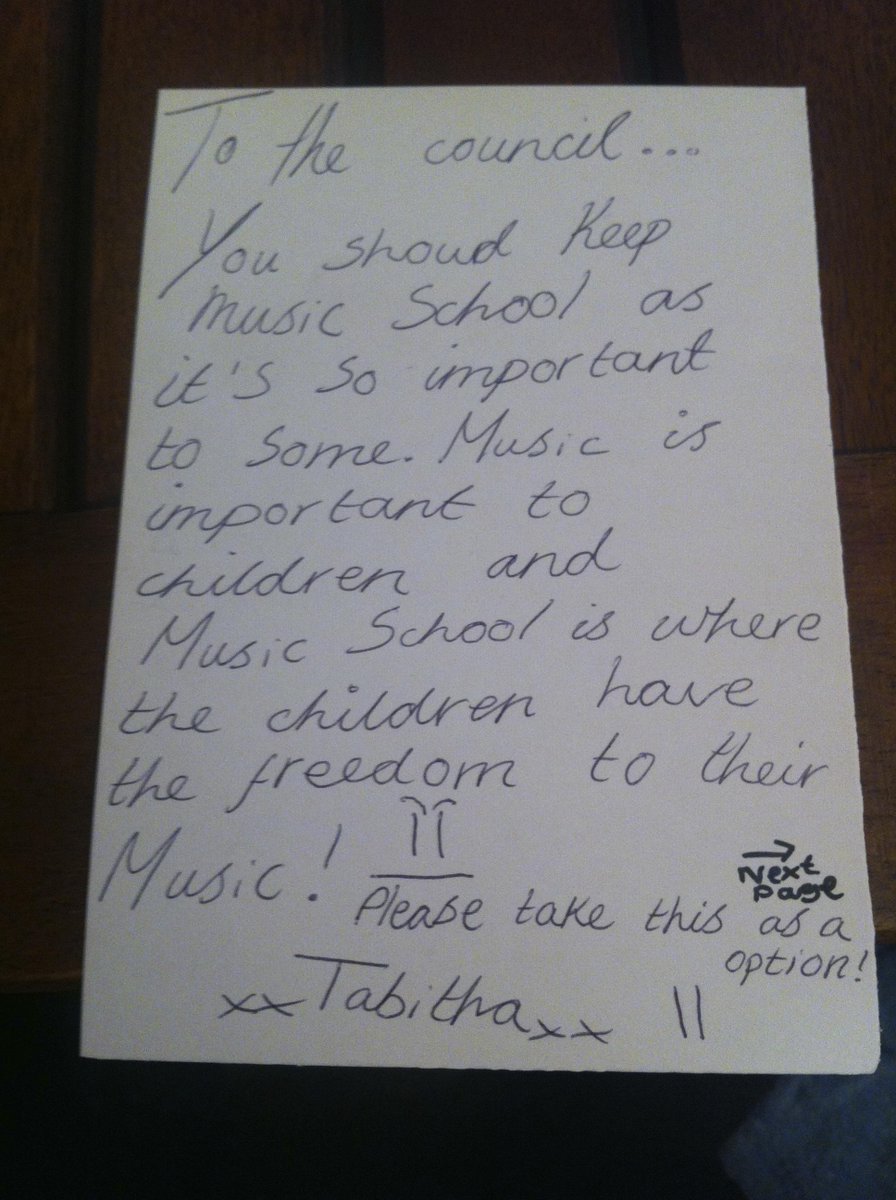 To the council....
You shoud Keep
Music School as
it's so important
to some. Music is
important to
children and
Music School is where
the children have
the freedom to their
Music!
Next
page
Please take this as a
option!
xx Tabitha xx 11